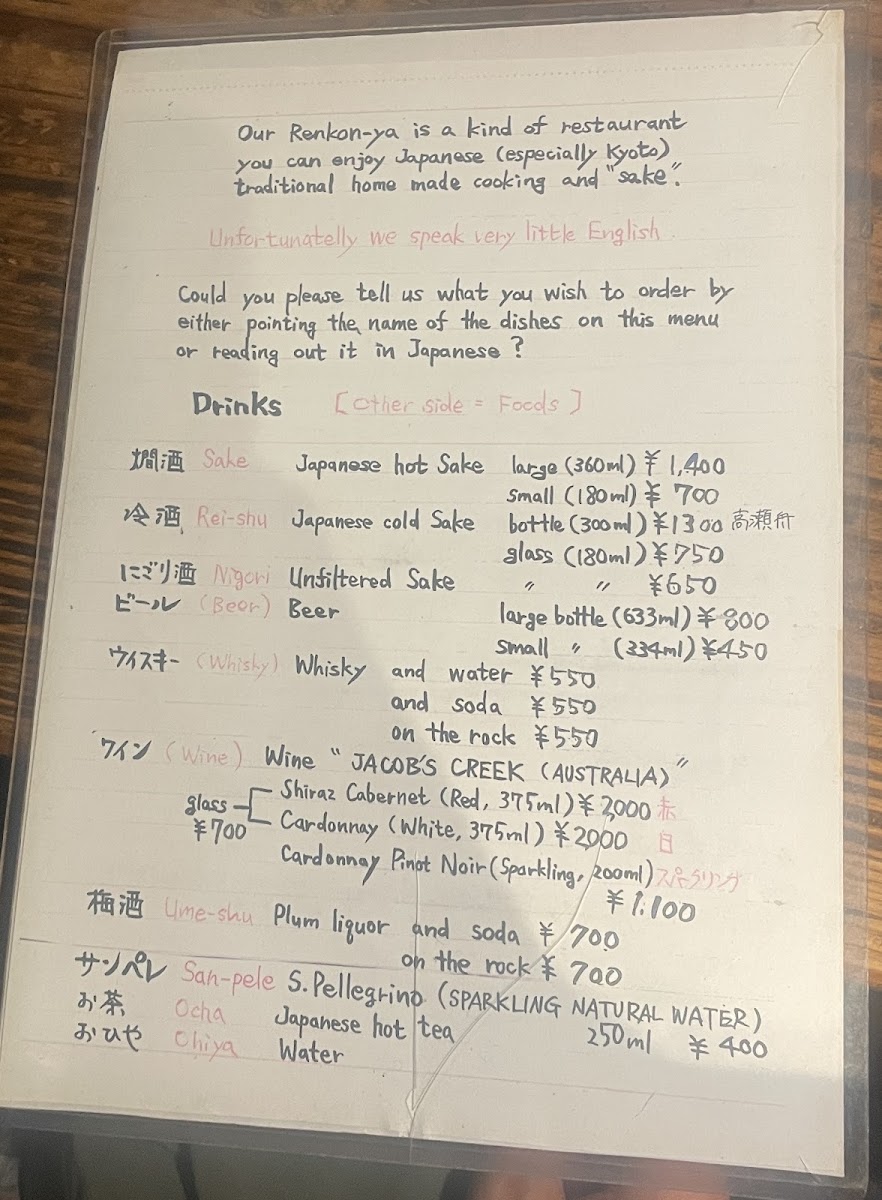 Our Renkon-ya is a kind of restaurant
you can enjoy Japanese (especially Kyoto)
traditional home made cooking and "sake".
Unfortunatelly we speak very little English.
Could you please tell us what you wish to order by
either pointing the name of the dishes on this menu
or reading out it in Japanese?
Drinks [Other side = Foods]
燗酒 Sake Japanese hot Sake large (360ml) ¥ 1,400
small (180ml) ¥ 700
冷酒 Rei-shu Japanese cold Sake bottle (300ml) ¥1300 高瀬舟
glass (180ml) ¥750
にごり酒 Nigori Unfiltered Sake 〃 〃 ¥650
ビール (Beer) Beer large bottle (633ml) ¥ 800
small 〃 (334ml) ¥450
ウイスキー (Whisky) Whisky and water ¥550
and soda ¥550
on the rock ¥550
ワイン (Wine) Wine "JACOB'S CREEK (AUSTRALIA)"
Shiraz Cabernet (Red, 375ml) ¥2,000 赤
glass ¥700
Cardonnay (White, 375ml) ¥2000 白
Cardonnay Pinot Noir (Sparkling, 200ml) スパークリング
¥1,100
梅酒 Ume-shu Plum liquor and soda ¥ 700
on the rock ¥ 700
サンペレ San-pele S.Pellegrino (SPARKLING NATURAL WATER)
250ml ¥ 400
お茶 Ocha Japanese hot tea
おひや Ohiya Water